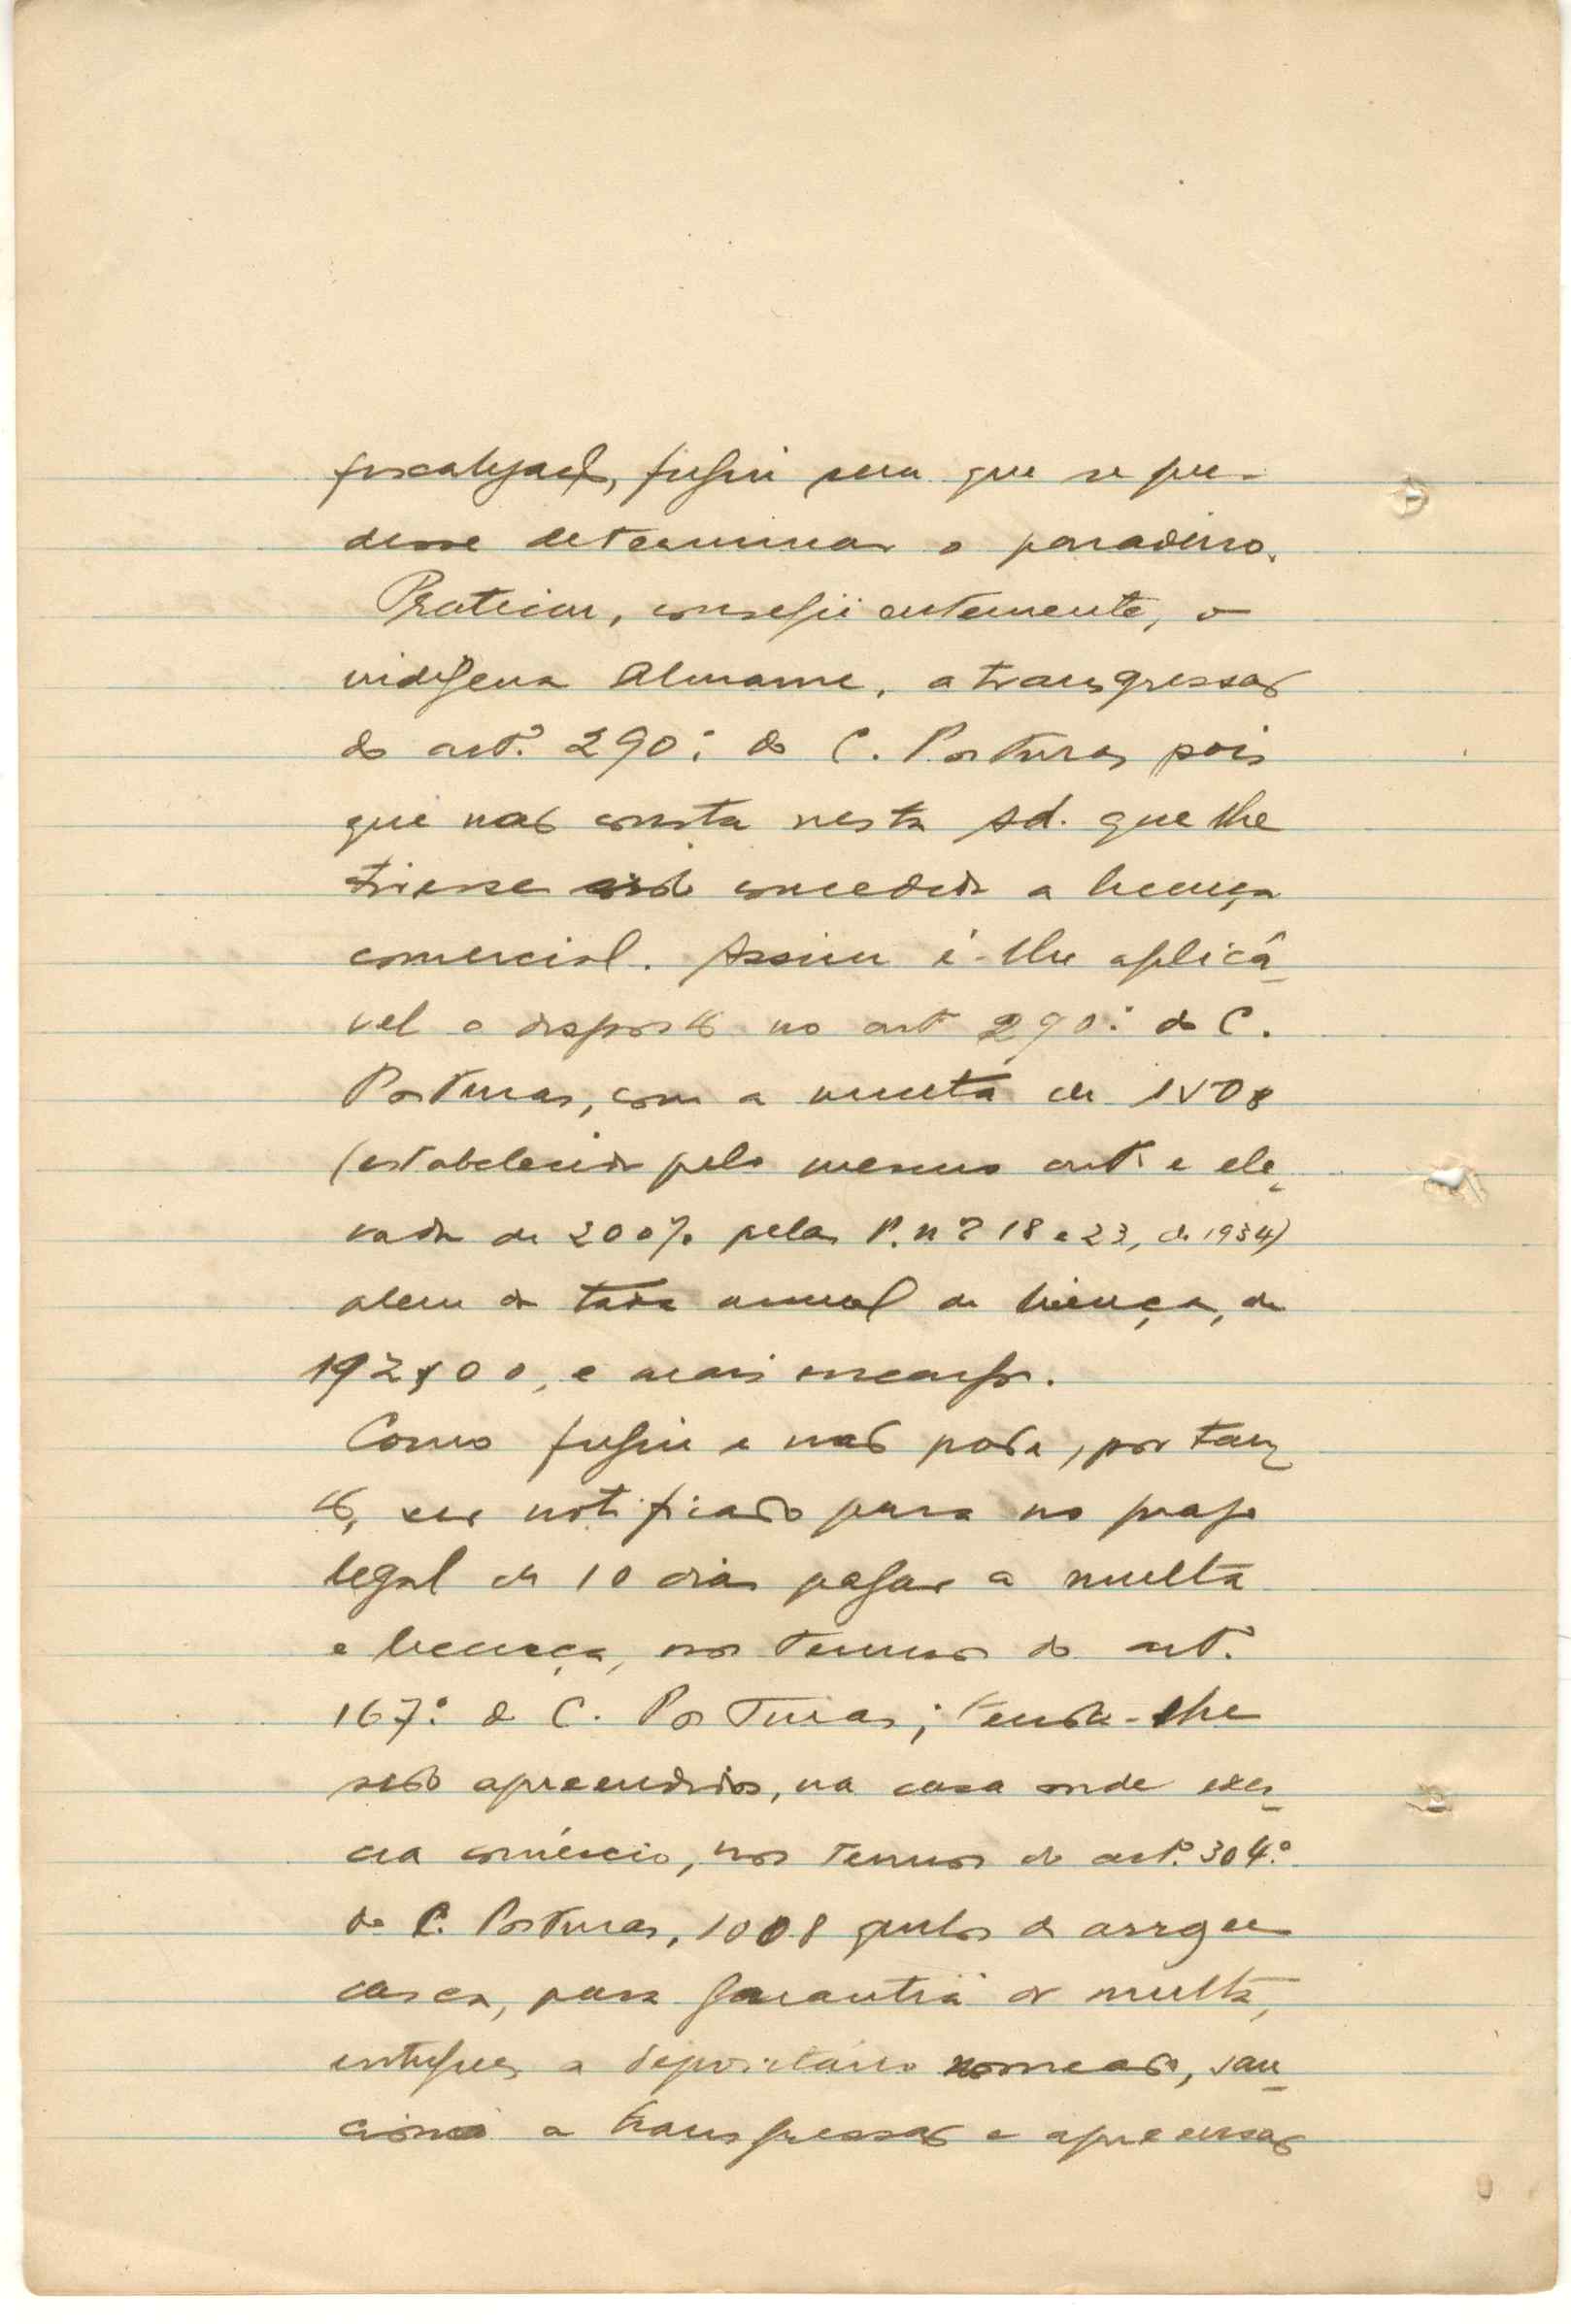 fiscalização, fugiu sem que se pu-
desse determinar o paradeiro.
Praticou, conseqüentemente, o
indígena Almame, a transgressão
do art.º 290.º do C. Posturas pois
que não consta nesta Ad. que lhe
tivesse sido concedida a licença
comercial. Assim é-lhe aplicá-
vel o disposto no art 290.º do C.
Posturas, com a multa de 150$
(estabelecida pelo mesmo art. e ele-
vada de 200% pelas P. nº 18 e 23, de 1934)
alem da taxa anual de licença, de
192$00, e mais encargos.
Como fugiu e não pode, portan-
to, ser notificado para no prazo
legal de 10 dias pagar a multa
e licença, nos termos do art.º
167.º do C. Posturas; tendo-lhe
sido apreendidos, na casa onde exer-
cia comércio, nos termos do art.º 304.º
do C. Posturas, 1008 quilos de arroz em
casca, para garantia da multa,
entregues a depositário nomeado, san-
ciono a transgressão e apreensão